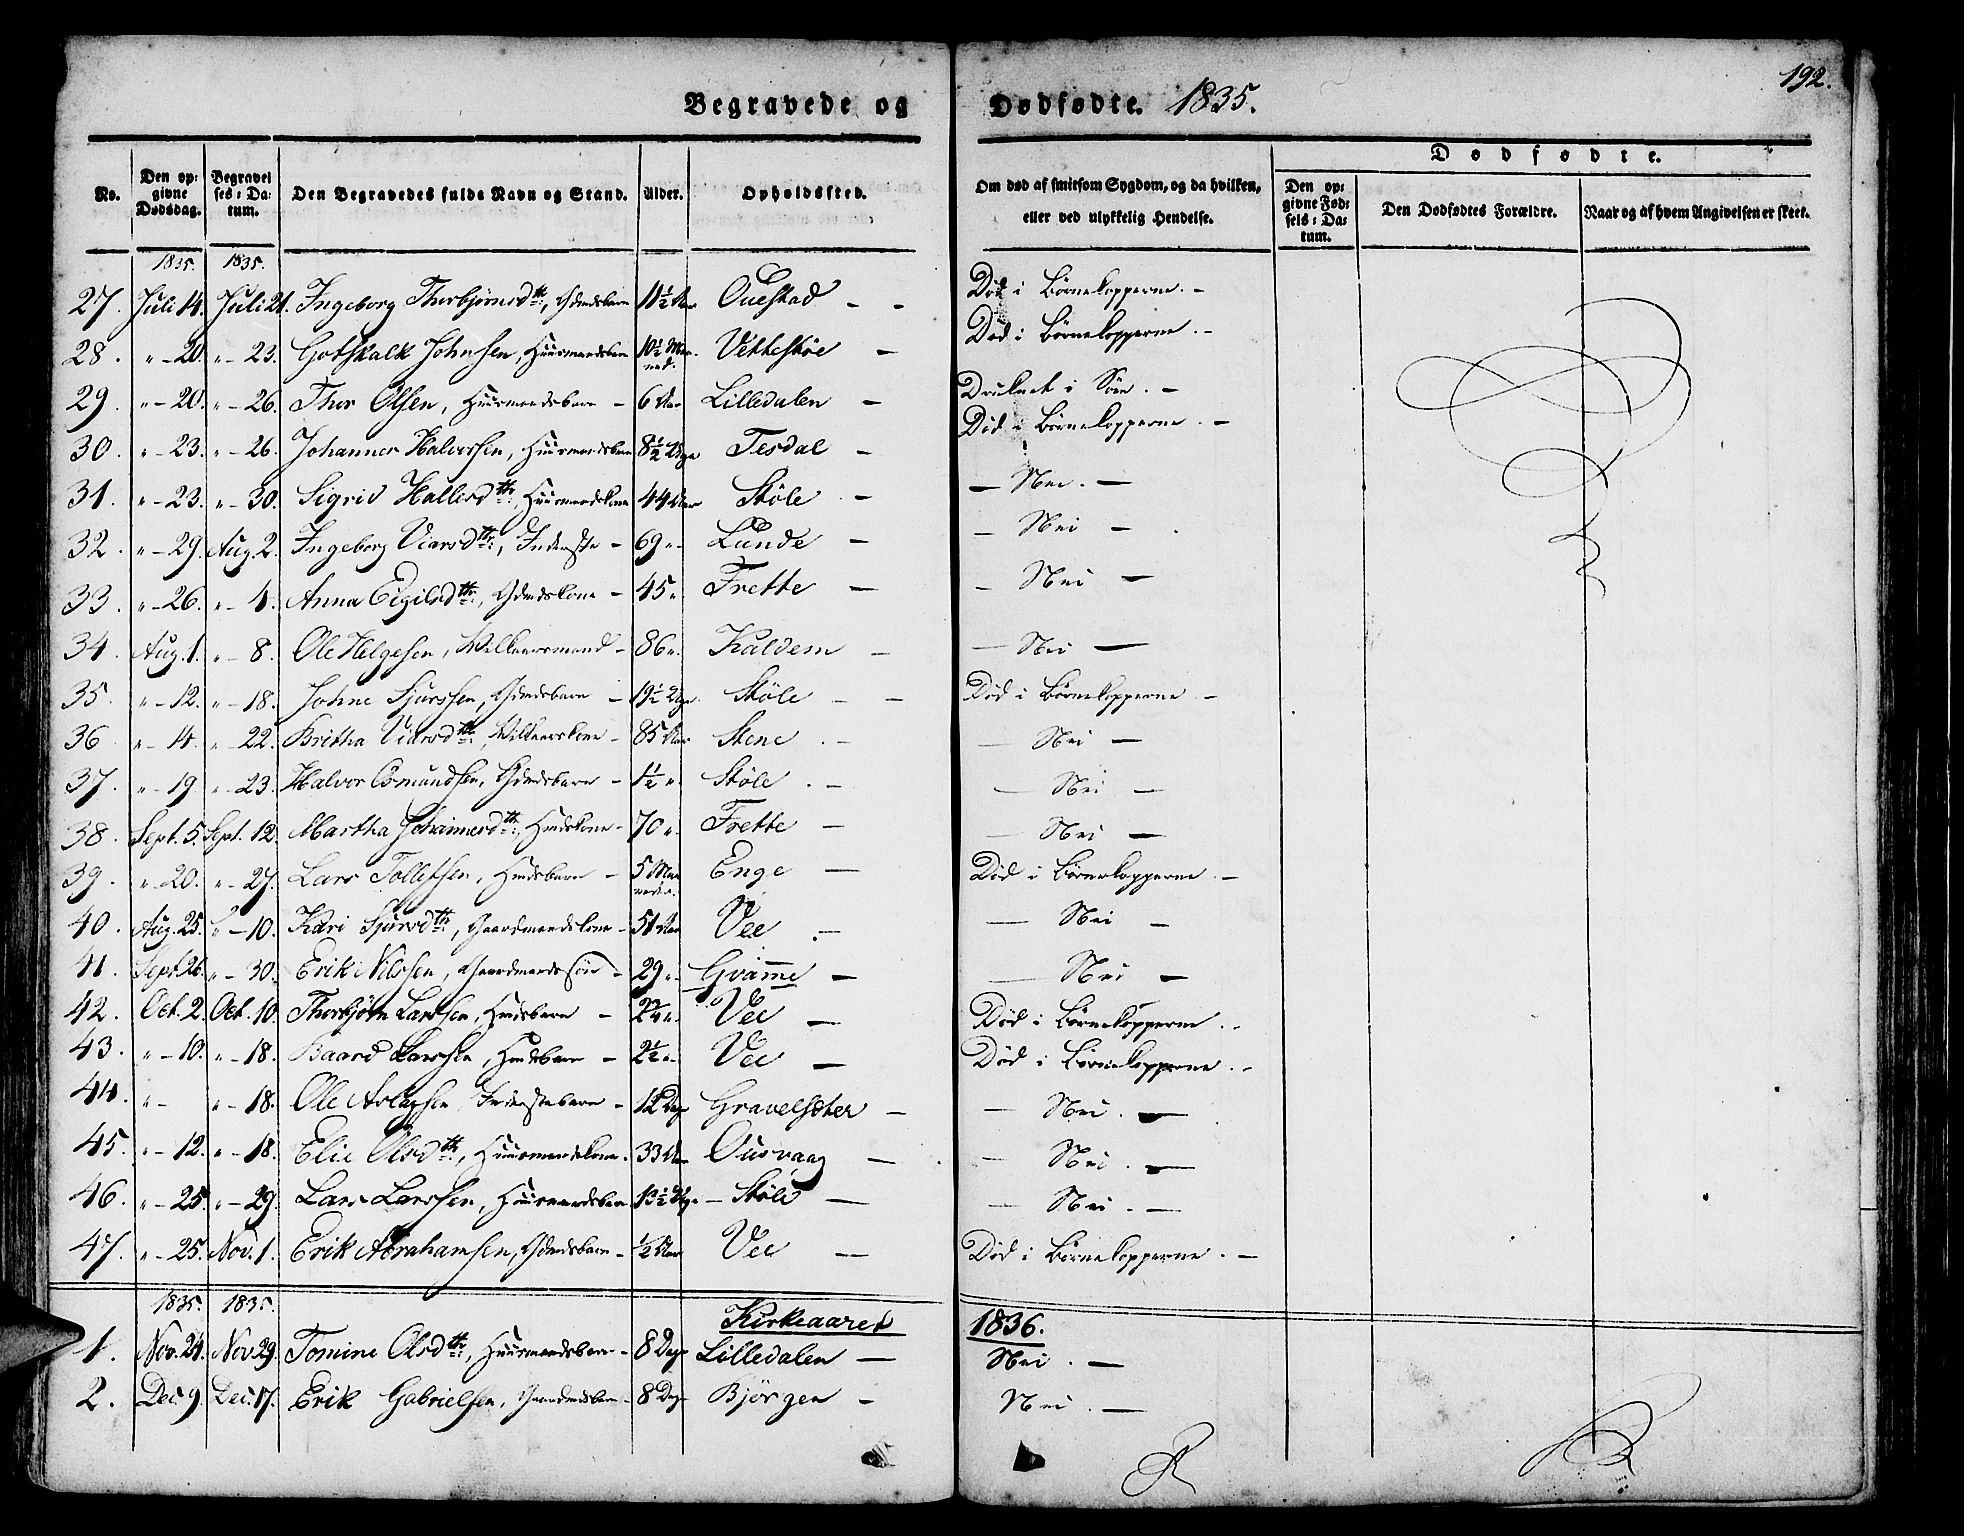 192.
Begravede og Dødfødte. 1835.
No. Den opgivne Dødsdag. Begravelses-Datum. Den Begravedes fulde Navn og Stand. Alder. Opholdssted. Om død af smitsom Sygdom, og da hvilken, eller ved ulykkelig Hendelse. Dødfødte. Den opgivne Fødsels-Datum. Den Dødfødtes Forældre. Naar og af hvem Angivelsen er skeet.
1835. 1835.
27. Juli 14. Juli 21. Ingeborg Thorbjørnsdtr., Gdmdsbarn 11½ Aar Ouestad - - Død i Børnekopperne. -
28. " - 20. " - 23. Gotskalk Johnsen, Huusmandsbarn 10½ Maaned. Vettestøe - Død i Børnekopperne. -
29. " - 20. " - 26. Thor Olsen, Huusmandsbarn - 6 Aar Lilledalen - Druknet i Søen. -
30. " - 23. " - 26. Johannes Halvorsen, Huusmandsbarn 8½ Uge Tesdal - Død i Børnekopperne. -
31. " - 23. " - 30. Sigrid Hallesdtr., Huusmandskone 44 Aar Støle - - Nei. -
32. " - 29. Aug. 2. Ingeborg Viarsdtr., Inderste - 69 " - Lunde - - Nei -
33. " - 26. " - 4. Anna Eigilsdtr., Gdmdskone - 45 " Frette - - Nei -
34. Aug. 1. " - 8. Ole Helgesen, Vilkaarsmand - 86 ". Kaldem - - Nei -
35. " - 12. " - 18. Johne Sjurssen, Gdmdsbarn - 19½ Uge. Støle - - Død i Børnekopperne -
36 " - 14. " - 22. Britha Viarsdtr., Vilkaarskone - 85 Aar Stene . - - Nei -
37. " - 19 " - 23. Halvor Osmundsen, Gdmdsbarn - 1½ ". Støle . - - Nei -
38. Sept. 5. Sept. 12. Martha Johannesdtr., Hmdskone - 70 ". Frette - - Nei -
39. " - 20. " - 27. Lars Tollefsen, Hmdsbarn - 5 Maaneder. Enge - Død i Børnekopperne. -
40. Aug. 25. S - 10. Kari Sjursdtr., Gaardmandskone - 51 Aar Vee . - - Nei -
41. Sept. 26. " - 30. Erik Nilssen, Gaardmandssøn - 29 " - Gvamme - - Nei -
42. Oct. 2. Oct. 10. Thorbjørn Larssen, Hmdsbarn - Vee - Død i Børnekopperne. -
43. " - 10. " - 18. Baard Larssen, Hmdsbarn - 2½ ". Vee - Død i Børnekopperne. -
44. " - " - 18. Ole Aslagsen, Inderstebarn - 12 Dage Gravelsæter - - Nei. -
45. " - 12. " - 18. Elie Olsdtr., Huusmandskone. 33 Aar Ousvaag - - Nei. -
46. " - 25. " - 29. Lars Larssen, Huusmandsbarn 13½ Uge - Støle - - Nei. -
47. " - 25. Nov. 1. Erik Abrahamsen, Gdmdsbarn - ½ Aar Vee - Død i Børnekopperne. -
1835. 1835. Kirkeaaret 1836.
1. Nov. 24. Nov. 29. Tomine Olsdtr., Huusmandsbarn - 8 Dage Lilledalen - Nei . -
2. Dec. 9. Dec. 17. Erik Gabrielsen, Gaardmdsbarn - 8 Dage Bjørgen - Nei . -